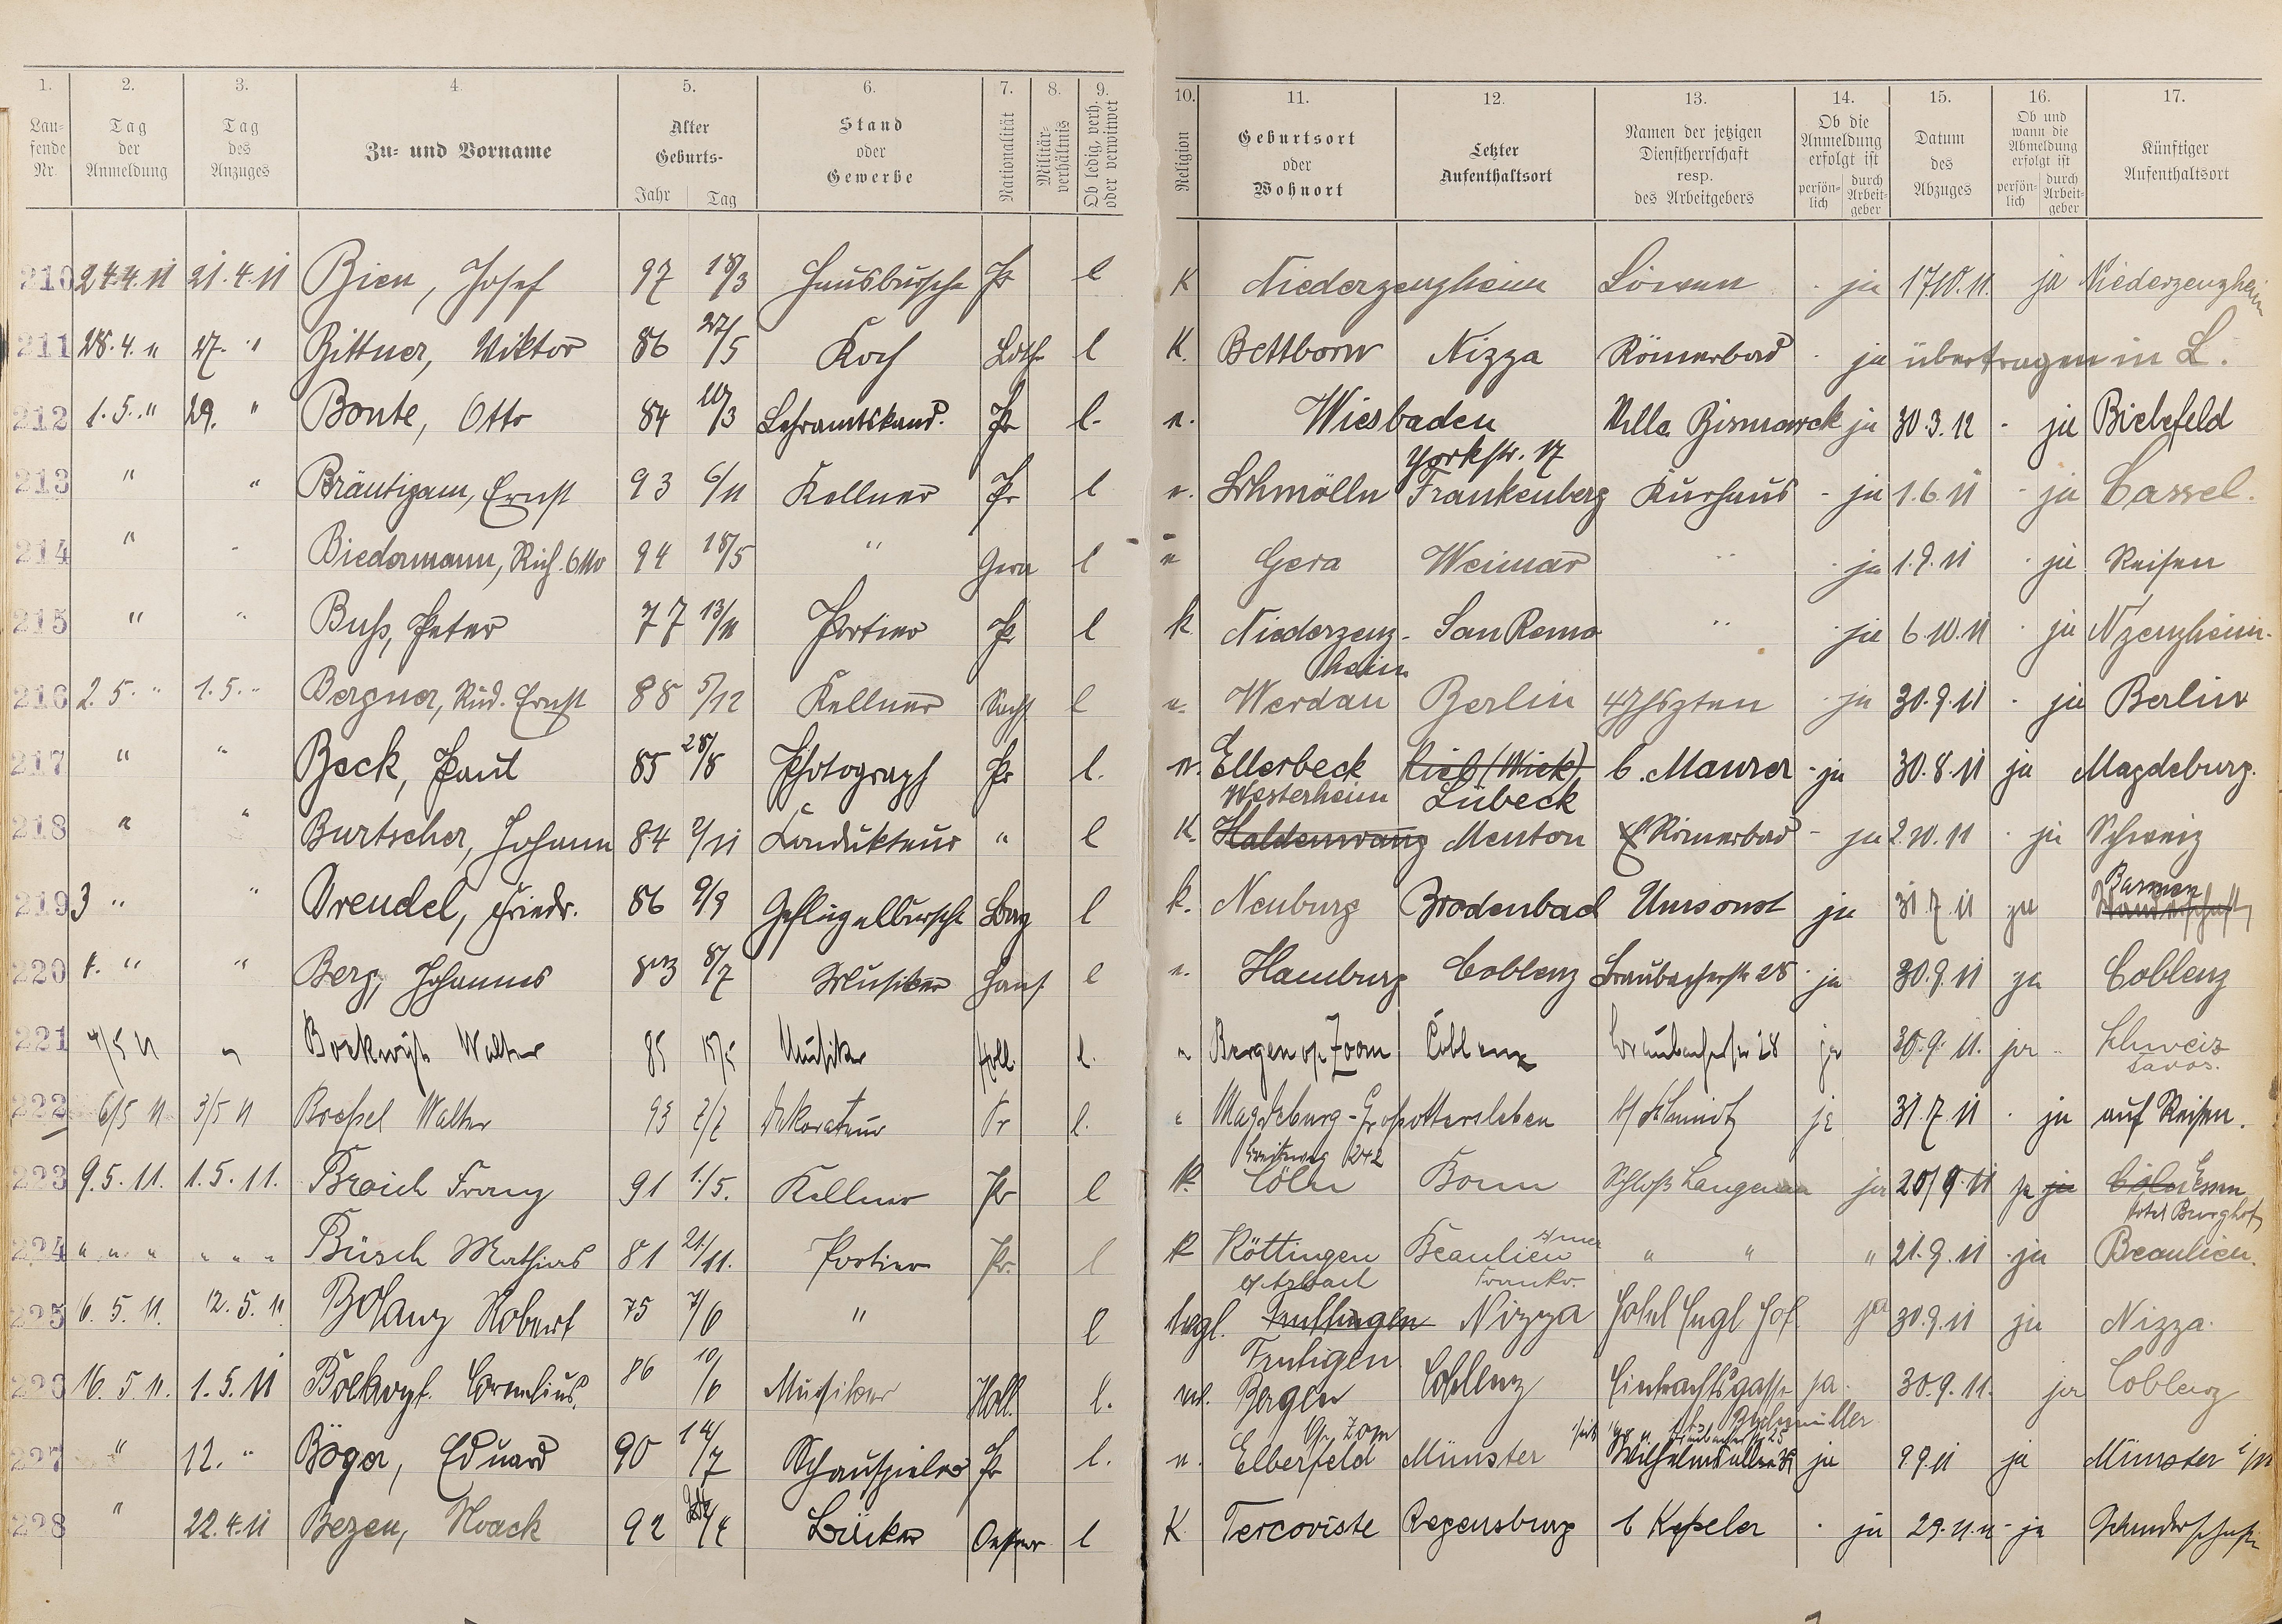 1. 2. 3. 4. 5. 6. 7. 8. 9. 10. 11. 12. 13. 14. 15. 16. 17.
Lau-fende Nr. Tag der Anmeldung Tag des Anzuges Zu- und Vorname Alter Geburts- Jahr Tag Stand oder Gewerbe Nationalität Militär-verhältnis Ob ledig, verh. oder verwitwet Religion Geburtsort oder Wohnort Letzter Aufenthaltsort Namen der jetzigen Dienstherrschaft resp. des Arbeitgebers Ob die Anmeldung erfolgt ist persön-lich durch Arbeit-geber Datum des Abzuges Ob und wann die Abmeldung erfolgt ist persön-lich durch Arbeit-geber Künftiger Aufenthaltsort
210 24.4.11 21.4.11 Bien, Josef 97 18/3 Hausbursche Pr l K Niederzeuzheim Löwen - ja 17.10.11. ja Niederzeuzheim
211 28.4. " 27. " Bittner, Viktor 86 27/5 Koch Lothr l K. Bettborn Nizza Römerbad - ja übertragen in L.
212 1.5. " 29. " Bonte, Otto 84 10/3 Lehramtskand. Pr l. e. Wiesbaden Villa Bismarck ja 30.3.12 - ja Bielefeld
Yorkstr. 17
213 " " Bräutigam, Ernst 93 6/11 Kellner Pr l e. Schmölln Frankenberg Kurhaus - ja 1.6.11 - ja Cassel.
214 " " Biedermann, Rich. Otto 94 18/5 " Gera l e Gera Weimar " - ja 1.9.11 - ja Reisen
215 " " Buß, Peter 77 13/11 Portier Pr l k. Niederzeuz- San Remo " - ja 6.10.11 - ja Nzeuzheim.
heim
216 2.5. " 1.5. " Bergner, Rud. Ernst 88 5/12 Kellner Sachs l e. Werdau Berlin 4 Jhszten - ja 30.9.11 - ja Berlin
217 " " Beck, Paul 85 28/8 Photograph Pr l. e. Ellerbeck Kiel (Wiek), b. Maurer - ja 30.8.11 ja Magdeburg.
Westerheim Lübeck
218 " " Burtscher, Johann 84 2/11 Kondukteur " l K. Haldenwang Menton Römerbad - ja 2.10.11 - ja Schweiz
219 3 " " Drendel, Friedr. 86 9/9 Geflügelbursche l k. Neuburg Brodenbad Umsonst ja 31.7.11 ja Wanderschaft
Barmen
220 4. " " Berg, Johannes 83 8/7 Musiker Hans l e. Hamburg Coblenz Braubacherstr 28 - ja 30.9.11 ja Coblenz
221 4/5 11 " Walter 85 Musiker Holl. l. " Bergen op Zoom Coblenz Braubacherstr 28 ja 30.9.11. ja Schweiz
Davos.
222 6/5 11 3/5 11 Boeßel Walter 93 7/7 Dekorateur Pr l. e Magdeburg-Großottersleben H/ Schmidt ja 31.7.11 - ja auf Reisen.
Breiteweg 242
223 9.5.11. 1.5.11. Broich Franz 91 1./5. Kellner Pr l K. Cöln Bonn Schloß Langenau ja 20/9.11 ja ja Cöln Essen
Hotel Burghof
224 " " " " " " Büsch Mathias 81 21/11. Portier Pr. l K Röttingen Beaulieu s/mer " " " 21.9.11 - ja Beaulieu.
Frankr.
225 6.5.11. 12.5.11. Robert 75 7/6 " l evgl. Nizza Hotel Engl Hof ja 30.9.11 ja Nizza.
Frutigen
226 16.5.11. 1.5.11 Cornelius. 86 10/6 Musiker Holl. l. ev. Bergen Coblenz Eintrachtsgasse ja. 30.9.11. ja Coblenz
Op Zoom
227 " 12. " Böger, Eduard 90 14/7 Schauspieler Pr l. e. Elberfeld Münster Wilhelmsallee ja 9.9.11 ja Münster i/W
228 " 22.4.11 Bezen, Noack 92 Bäcker Oester l K Tercoviste Regensburg b Keßeler - ja 29.11.11 - ja Wanderschaft